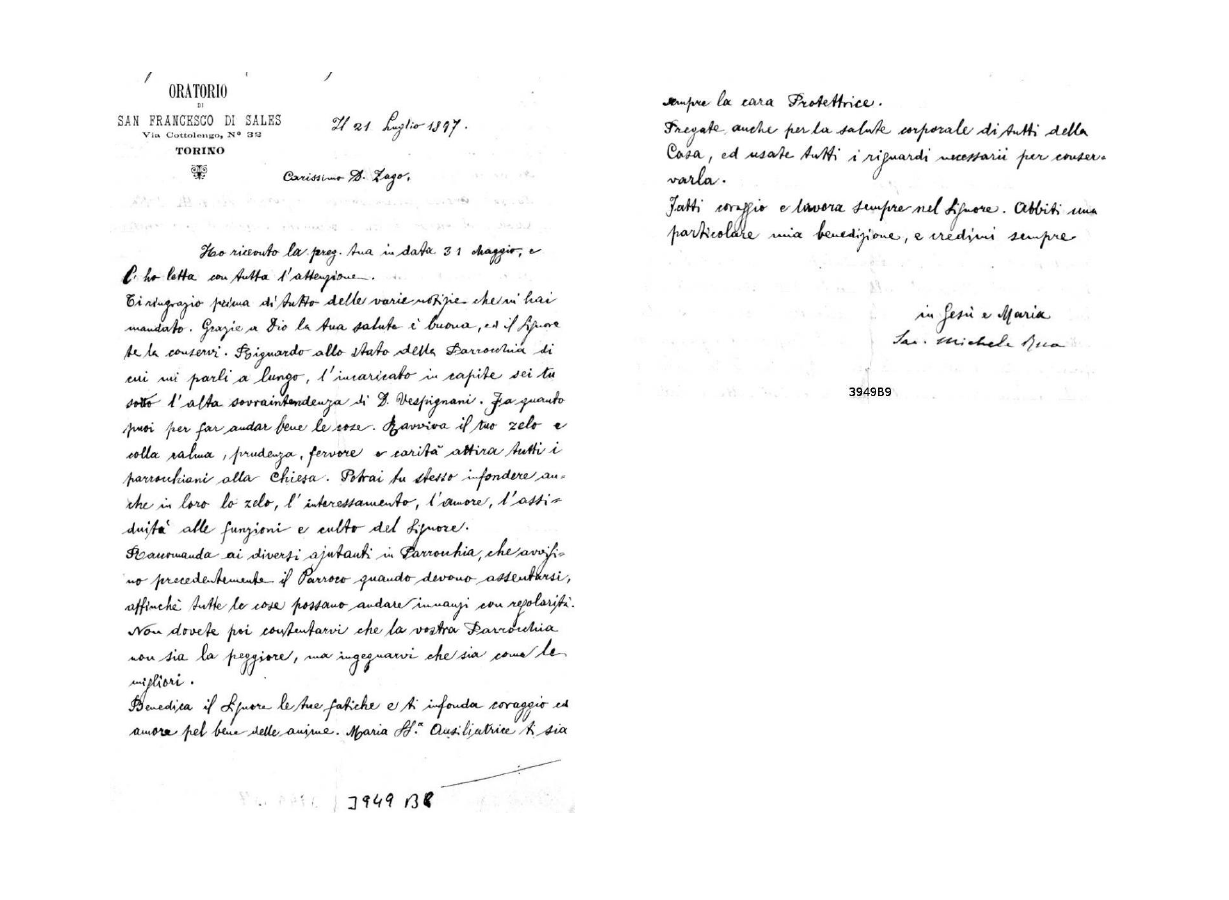 ORATORIO
DI
SAN FRANCESCO DI SALES
Via Cottolengo, Nº 32
TORINO
Il 21 Luglio 1897.
Carissimo D. Zago,
Ho ricevuto la preg. tua in data 31 Maggio, e
l'ho letta con tutta l'attenzione.
Ti ringrazio prima di tutto delle varie notizie che m'hai
mandato. Grazie a Dio la tua salute è buona, ed il Signore
te la conservi. Riguardo allo stato della Parrocchia di
cui mi parli a lungo, l'incaricato in capite sei tu
sotto l'alta sovraintendenza di D. Vespignani. Fa quanto
puoi per far andar bene le cose. Ravviva il tuo zelo e
colla calma, prudenza, fervore e carità attira tutti i
parrocchiani alla Chiesa. Potrai tu stesso infondere an-
che in loro lo zelo, l'interessamento, l'amore, l'assi-
duità alle funzioni e culto del Signore.
Raccomanda ai diversi ajutanti in Parrocchia, che avvisi-
no precedentemente il Parroco quando devono assentarsi,
affinchè tutte le cose possano andare innanzi con regolarità.
Non dovete poi contentarvi che la vostra Parrocchia
non sia la peggiore, ma ingegnarvi che sia come le
migliori.
Benedica il Signore le tue fatiche e ti infonda coraggio ed
amore pel bene delle anime. Maria SS.ª Ausiliatrice ti sia
3949 B8
sempre la cara Protettrice.
Pregate anche per la salute corporale di tutti della
Casa, ed usate tutti i riguardi necessarii per conser-
varla.
Fatti coraggio e lavora sempre nel Signore. Abbiti una
particolare mia benedizione, e credimi sempre
in Gesù e Maria
Sac. Michele Rua
3949B9